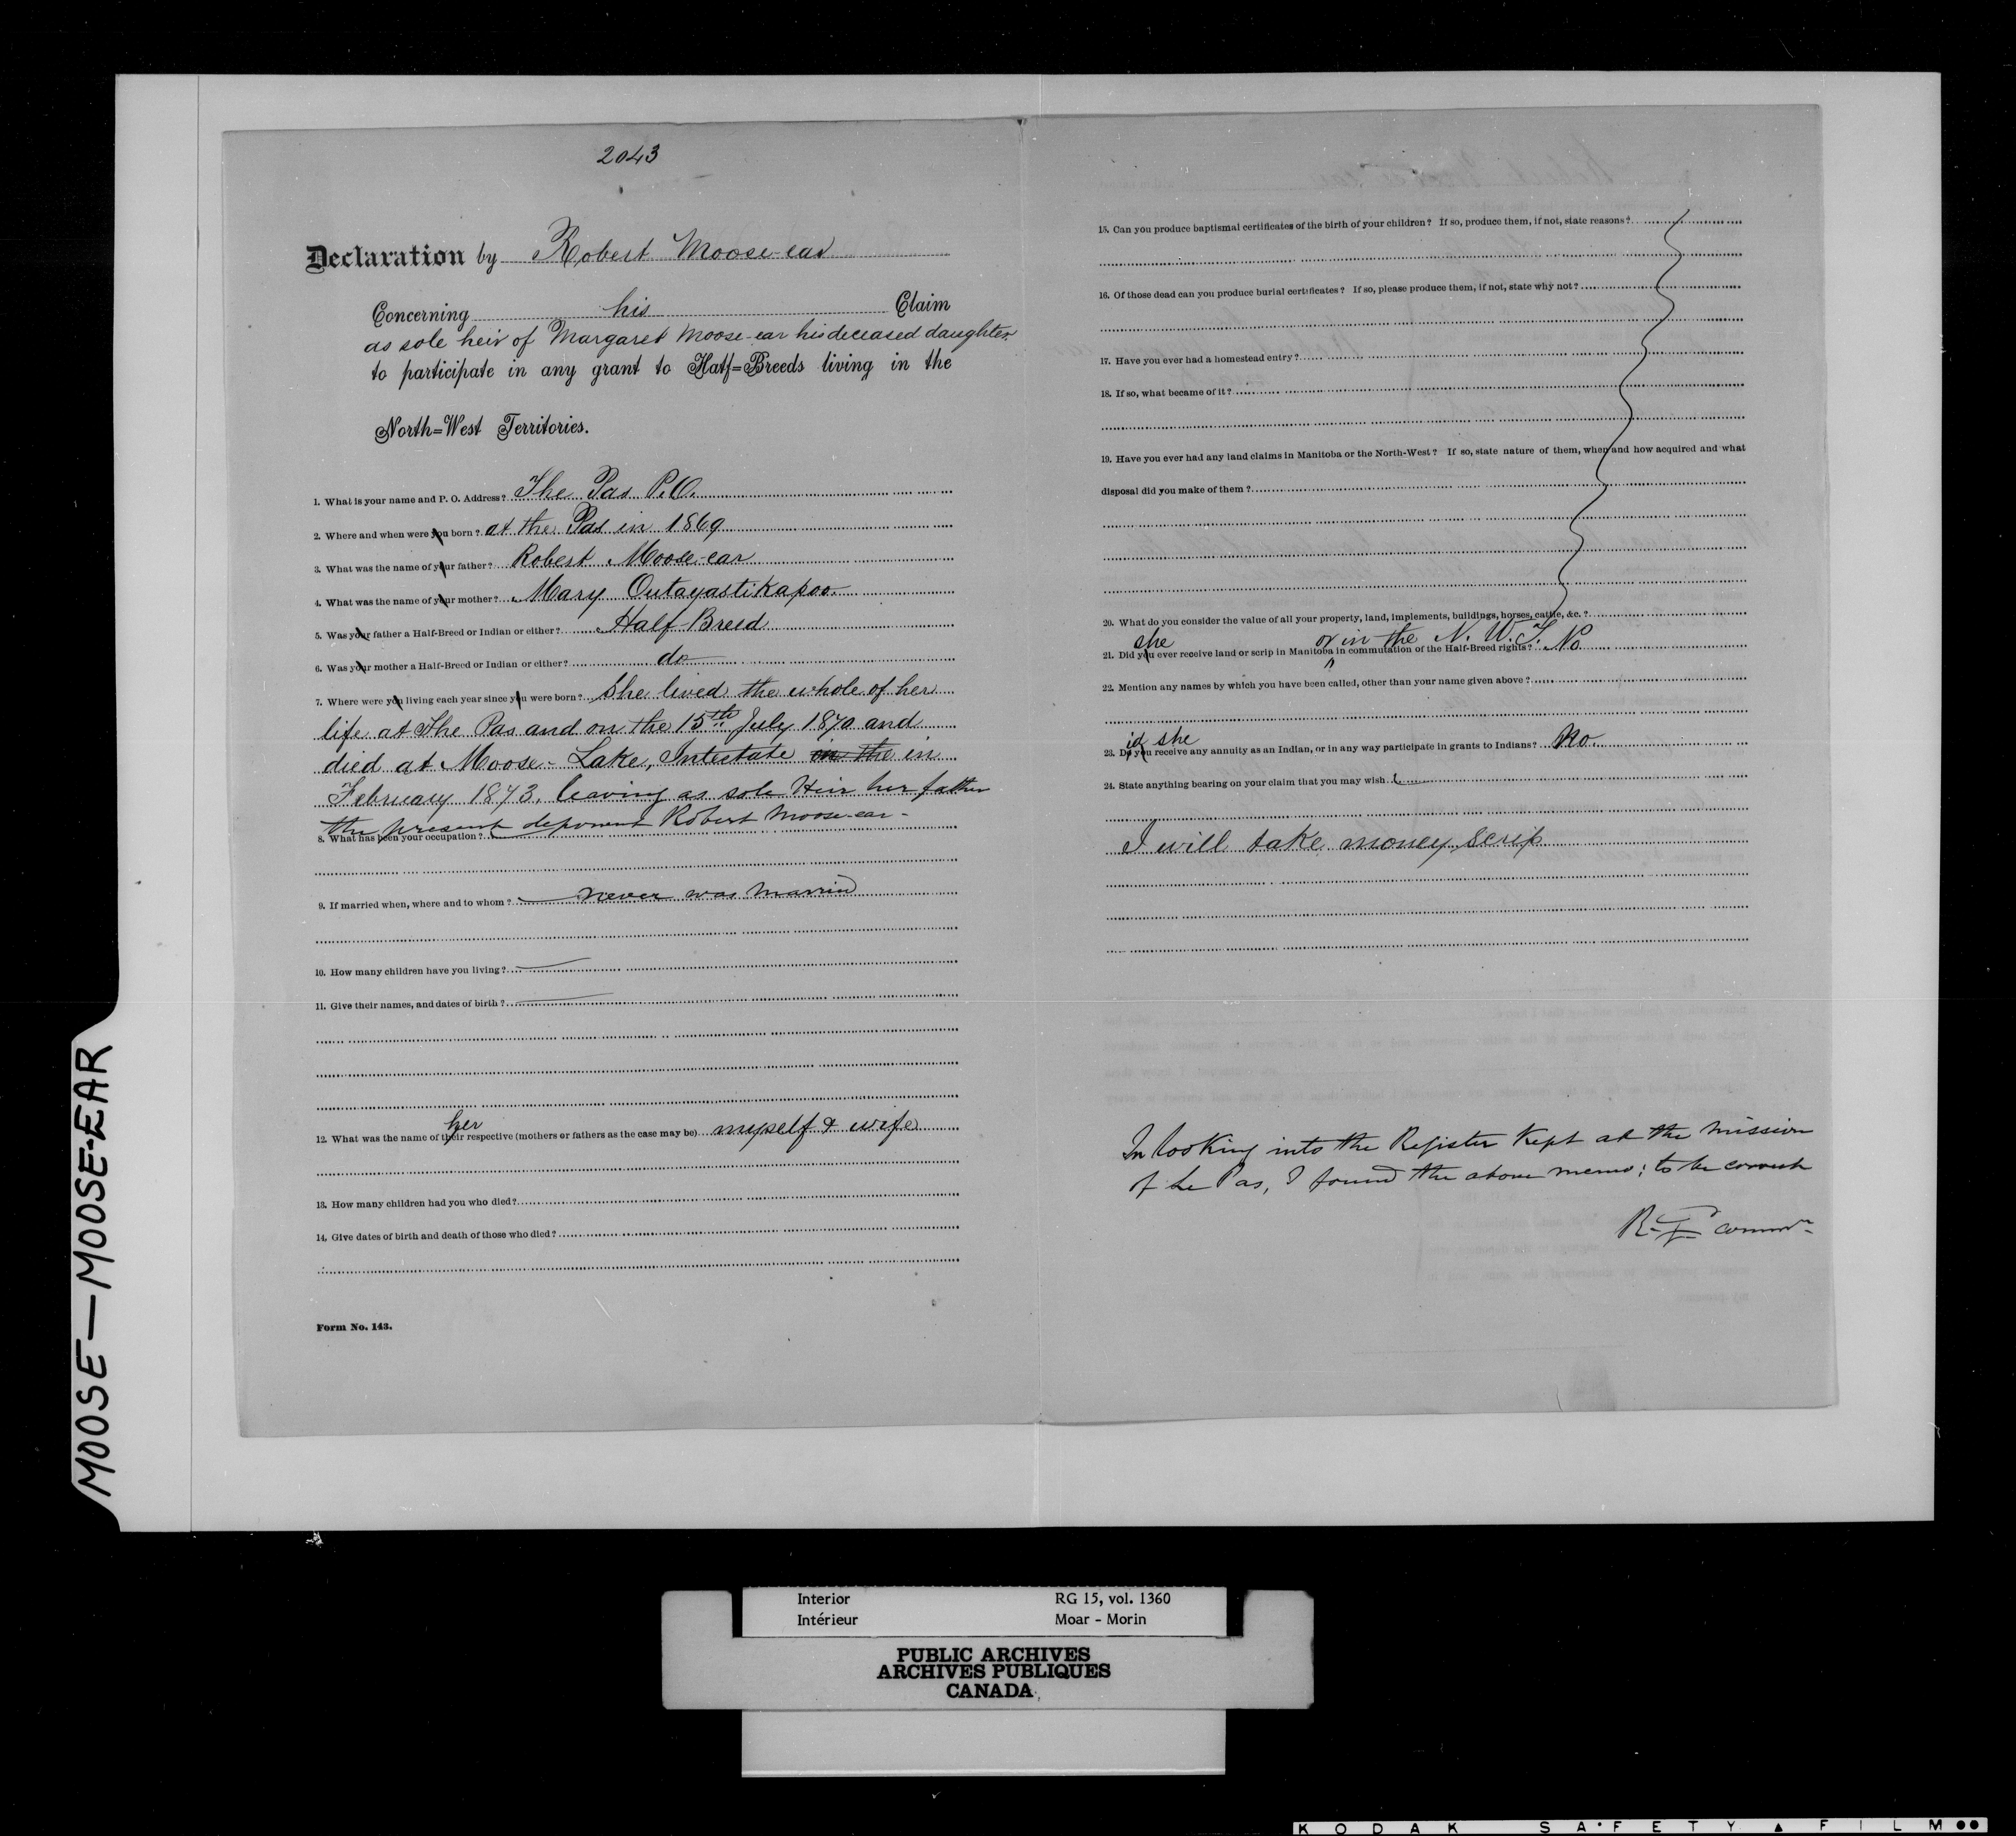 2043
Declaration by Robert Moose-ear
Concerning his Claim
as sole heir of Margaret Moose-ear his deceased daughter
to participate in any grant to Half=Breeds living in the
North=West Territories.
1. What is your name and P. O. Address? The Pas P.O.
2. Where and when were you born? at the Pas in 1869
3. What was the name of your father? Robert Moose-ear
4. What was the name of your mother? Mary Outayastikapoo
5. Was your father a Half-Breed or Indian or either? Half-Breed
6. Was your mother a Half-Breed or Indian or either? do
7. Where were you living each year since you were born? She lived the whole of her
life at The Pas and on the 15th July 1870 and
died at Moose-Lake, Intestate in the in
February 1873, leaving as sole Heir her father
the present deponent Robert Moose-ear-
8. What has been your occupation?
9. If married when, where and to whom? never was married
10. How many children have you living?
11. Give their names, and dates of birth?
her
12. What was the name of their respective (mothers or fathers as the case may be) myself & wife
13. How many children had you who died?
14. Give dates of birth and death of those who died?
Form No. 143.
15. Can you produce baptismal certificates of the birth of your children? If so, produce them, if not, state reasons?
16. Of those dead can you produce burial certificates? If so, please produce them, if not, state why not?
17. Have you ever had a homestead entry?
18. If so, what became of it?
19. Have you ever had any land claims in Manitoba or the North-West? If so, state nature of them, when and how acquired and what
disposal did you make of them?
20. What do you consider the value of all your property, land, implements, buildings, horses, cattle, &c.?
she or in the N. W. T.
21. Did you ever receive land or scrip in Manitoba in commutation of the Half-Breed rights? No
22. Mention any names by which you have been called, other than your name given above?
id she
23. Do you receive any annuity as an Indian, or in any way participate in grants to Indians? No.
24. State anything bearing on your claim that you may wish.
I will take money scrip
In looking into the Register kept at the mission
of Le Pas, I found the above memo: to be correct
MOOSE—MOOSE-EAR
Interior RG 15, vol. 1360
Intérieur Moar - Morin
PUBLIC ARCHIVES
ARCHIVES PUBLIQUES
CANADA
KODAK SAFETY FILM